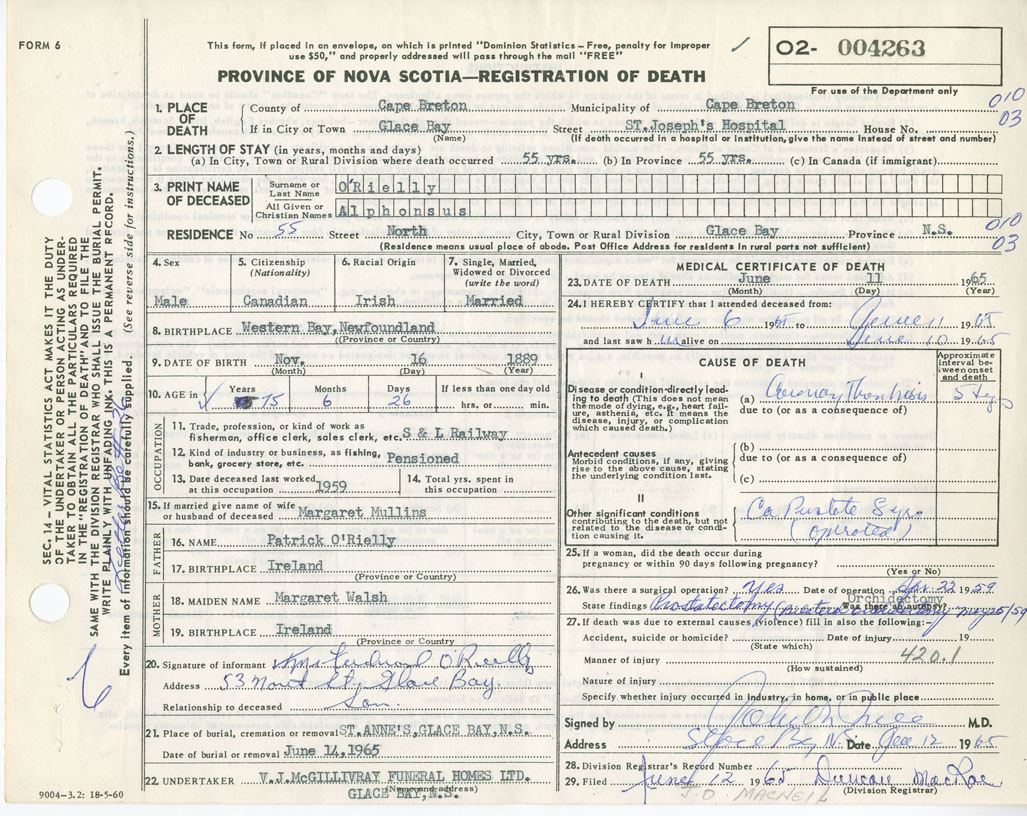 FORM 6
This form, if placed in an envelope, on which is printed "Dominion Statistics – Free, penalty for improper
use $50," and properly addressed will pass through the mail "FREE"
O2- 004263
PROVINCE OF NOVA SCOTIA—REGISTRATION OF DEATH
For use of the Department only
010
03
1. PLACE OF DEATH
County of Cape Breton Municipality of Cape Breton
If in City or Town Glace Bay Street ST.Joseph's Hospital House No.
(Name) (If death occurred in a hospital or institution, give the name instead of street and number)
2. LENGTH OF STAY (in years, months and days)
(a) In City, Town or Rural Division where death occurred 55 yrs. (b) In Province 55 yrs. (c) In Canada (if immigrant)
3. PRINT NAME OF DECEASED
Surname or Last Name O'Rielly
All Given or Christian Names Alphonsus
RESIDENCE No 55 Street North City, Town or Rural Division Glace Bay Province N.S.
010
03
(Residence means usual place of abode. Post Office Address for residents in rural parts not sufficient)
4. Sex
Male
5. Citizenship
(Nationality)
Canadian
6. Racial Origin
Irish
7. Single, Married,
Widowed or Divorced
(write the word)
Married
8. BIRTHPLACE Western Bay,Newfoundland
(Province or Country)
9. DATE OF BIRTH Nov. 16 1889
(Month) (Day) (Year)
10. AGE in
Years Months Days If less than one day old
75 6 26 hrs. or min.
OCCUPATION
11. Trade, profession, or kind of work as
fisherman, office clerk, sales clerk, etc. S & L Railway
12. Kind of industry or business, as fishing,
bank, grocery store, etc. Pensioned
13. Date deceased last worked
at this occupation 1959
14. Total yrs. spent in
this occupation
15. If married give name of wife
or husband of deceased Margaret Mullins
FATHER
16. NAME Patrick O'Rielly
17. BIRTHPLACE Ireland
(Province or Country)
MOTHER
18. MAIDEN NAME Margaret Walsh
19. BIRTHPLACE Ireland
(Province or Country)
20. Signature of informant O'Rielly
Address 53 North St, Glace Bay.
Relationship to deceased Son.
21. Place of burial, cremation or removal ST.ANNE'S,GLACE BAY,N.S.
Date of burial or removal June 14,1965
22. UNDERTAKER V.J.McGILLIVRAY FUNERAL HOMES LTD.
(Name and address)
GLACE BAY,N.S.
9004-3.2: 18-5-60
MEDICAL CERTIFICATE OF DEATH
23. DATE OF DEATH June 11 1965
(Month) (Day) (Year)
24. I HEREBY CERTIFY that I attended deceased from:
June 6 1965 to June 11 1965
and last saw him alive on June 10 1965
CAUSE OF DEATH
Approximate
interval be-
tween onset
and death
I
Disease or condition directly lead-
ing to death (This does not mean
the mode of dying, e.g., heart fail-
ure, asthenia, etc. It means the
disease, injury, or complication
which caused death.)
(a) Coronary Thrombosis
due to (or as a consequence of)
Antecedent causes
Morbid conditions, if any, giving
rise to the above cause, stating
the underlying condition last.
(b)
due to (or as a consequence of)
(c)
II
Other significant conditions
contributing to the death, but not
related to the disease or condi-
tion causing it.
Ca Prostate
(operated)
25. If a woman, did the death occur during
pregnancy or within 90 days following pregnancy?
(Yes or No)
26. Was there a surgical operation? Yes Date of operation Apr. 22 1959
Orchidectomy
State findings Prostatectomy Was there an autopsy? May 25/59
27. If death was due to external causes, (violence) fill in also the following:–
Accident, suicide or homicide? Date of injury 19
(State which)
Manner of injury 420.1
(How sustained)
Nature of injury
Specify whether injury occurred in industry, in home, or in public place
Signed by M.D.
Address Glace Bay N. Date June 12 1965
28. Division Registrar's Record Number
29. Filed June 12 1965 Duncan MacRae
(Division Registrar)
J.D. MACNEIL
SEC. 14 – VITAL STATISTICS ACT MAKES IT THE DUTY
OF THE UNDERTAKER OR PERSON ACTING AS UNDER-
TAKER TO OBTAIN ALL THE PARTICULARS REQUIRED
IN THE "REGISTRATION OF DEATH" AND TO FILE THE
SAME WITH THE DIVISION REGISTRAR WHO SHALL ISSUE THE BURIAL PERMIT.
WRITE PLAINLY WITH UNFADING INK. THIS IS A PERMANENT RECORD.
Every item of information should be carefully supplied. (See reverse side for instructions.)